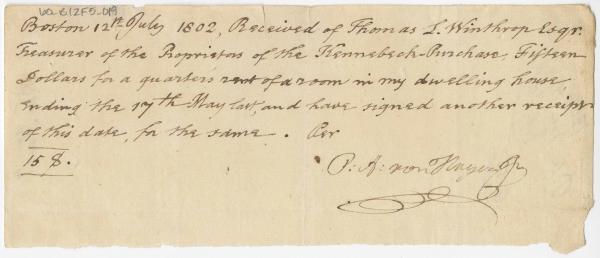 60-B12F5-019
Boston 12th July 1802, Received of Thomas L. Winthrop Esqr.
Treasurer of the Proprietors of the Kennebeck-Purchase, Fifteen
Dollars for a quarters rent of a room in my dwelling house
Ending the 17th May last, and have signed another receipt
of this date, for the same. Per
15 $.
P: A: von Hagen Jr